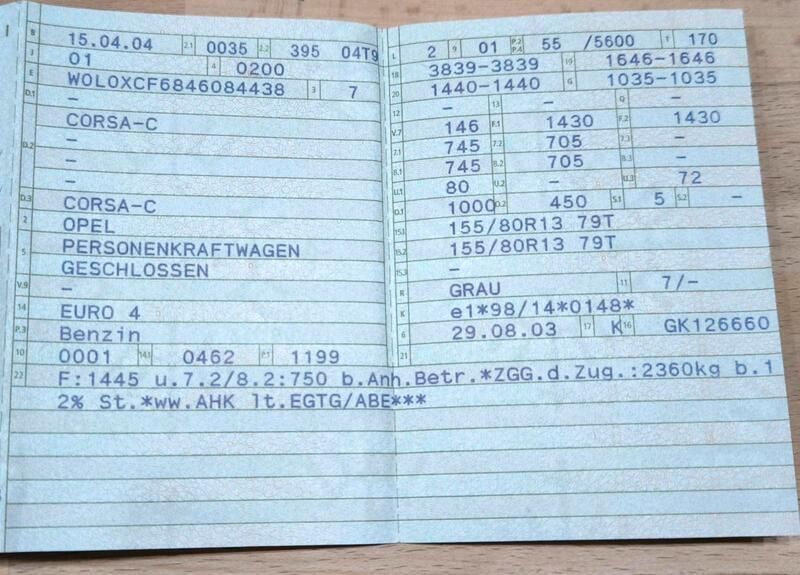 B 15.04.04 2.1 0035 2.2 395 04T9
J 01 4 0200
E W0L0XCF6846084438 3 7
D.1 –
CORSA-C
D.2 –
–
–
D.3 CORSA-C
2 OPEL
5 PERSONENKRAFTWAGEN
GESCHLOSSEN
V.9 –
14 EURO 4
P.3 Benzin
10 0001 14.1 0462 P.1 1199
L 2 9 01 P.2 P.4 55 /5600 T 170
18 3839-3839 19 1646-1646
20 1440-1440 G 1035-1035
12 – 13 – Q –
V.7 146 F.1 1430 F.2 1430
7.1 745 7.2 705 7.3 –
8.1 745 8.2 705 8.3 –
U.1 80 U.2 – U.3 72
O.1 1000 O.2 450 S.1 5 S.2 –
15.1 155/80R13 79T
15.2 155/80R13 79T
15.3 –
R GRAU 11 7/–
K e1*98/14*0148*
6 29.08.03 17 K 16 GK126660
21
22 F:1445 u.7.2/8.2:750 b.Anh.Betr.*ZGG.d.Zug.:2360kg b.1
2% St.*ww.AHK lt.EGTG/ABE***